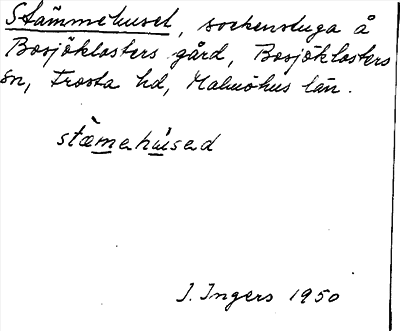 Stämmehuset, sockenstuga å
Bosjöklosters gård, Bosjöklosters
sn, Frosta hd, Malmöhus län.
stæ̀mehúsed
I. Ingers 1950